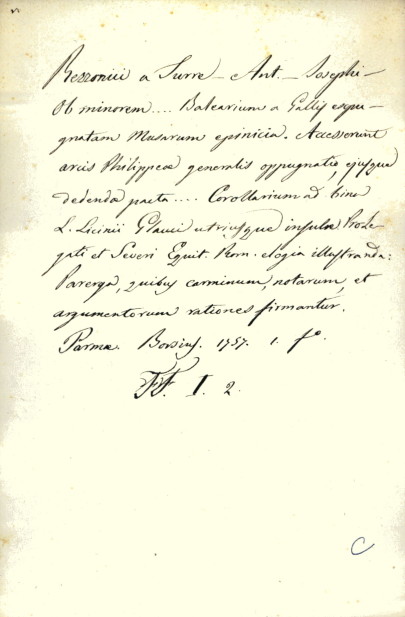 Rezzonici a Turre - Ant. - Josephi -
Ob minorem .... Balearium a Gallis expu-
gnatam Musarum epinicia. Accesserunt
arcis Philippeæ generalis oppugnatio, ejusque
dedendæ pacta .... Corollarium ad bina
L. Licinii Glauci utriusque insulæ Prole-
gati et Severi Equit. Rom. elogia illustranda:
Parerga, quibus carminum, notarum, et
argumentorum rationes firmantur.
Parmæ. Borsius. 1757. 1. fo.
FF. I. 2.
C